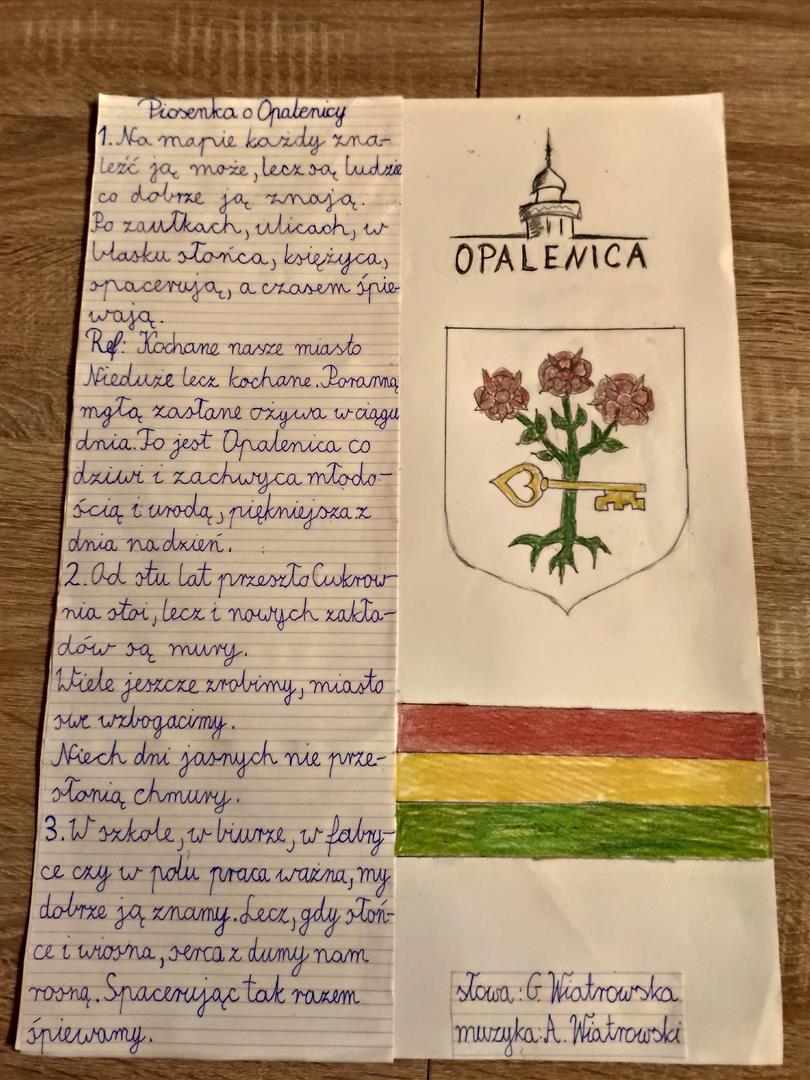 Piosenka o Opalenicy
1. Na mapie każdy zna-
leźć ją może, lecz są ludzie
co dobrze ją znają.
Po zaułkach, ulicach, w
blasku słońca, księżyca,
spacerują, a czasem śpie-
wają.
Ref: Kochane nasze miasto
Nieduże lecz kochane. Poranną
mgłą zasłane ożywa w ciągu
dnia. To jest Opalenica co
dziwi i zachwyca młodo-
ścią i urodą, piękniejsza z
dnia na dzień.
2. Od stu lat przeszło Cukrow-
nia stoi, lecz i nowych zakła-
dów są mury.
Wiele jeszcze zrobimy, miasto
swe wzbogacimy.
Niech dni jasnych nie prze-
słonią chmury.
3. W szkole, w biurze, w fabry-
ce czy w polu praca ważna, my
dobrze ją znamy. Lecz, gdy słoń-
ce i wiosna, serca z dumy nam
rosną. Spacerując tak razem
śpiewamy.
OPALENICA
słowa: G. Wiatrowska
muzyka: A. Wiatrowski